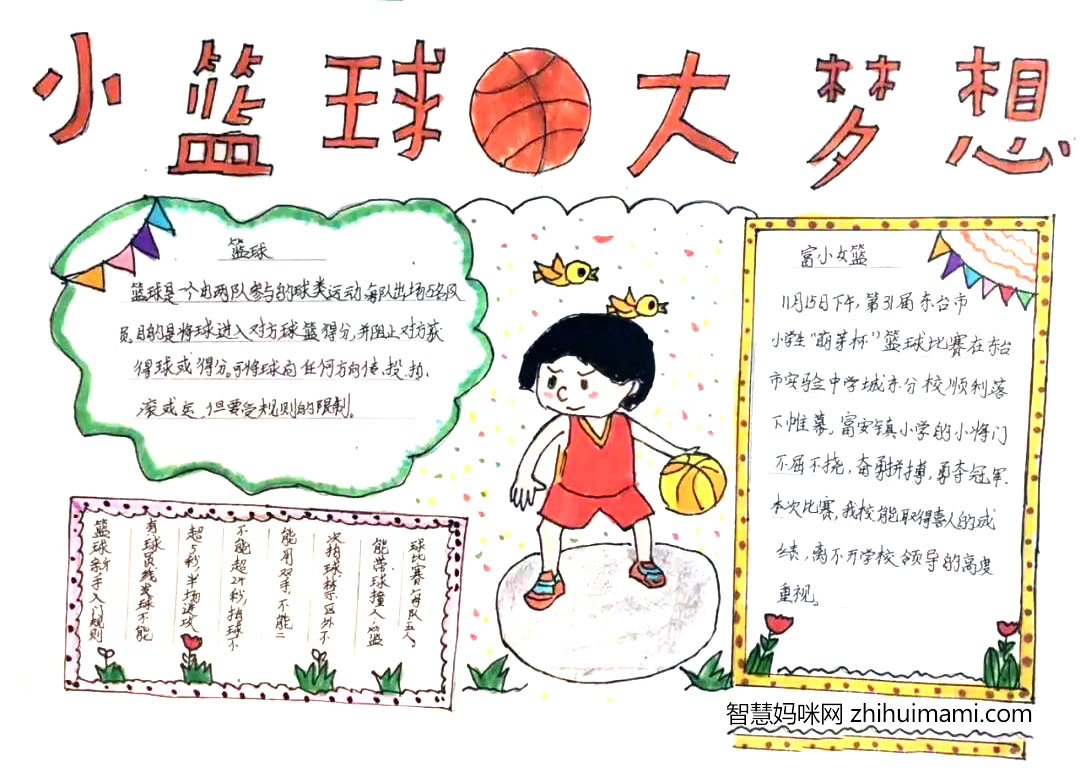 小篮球大梦想
篮球
篮球是一个由两队参与的球类运动,每队出场5名队
员,目的是将球进入对方球篮得分,并阻止对方获
得球或得分。可将球向任何方向传、投、拍、
滚或运,但要受规则的限制。
富小女篮
11月15日下午,第31届东台市
小学生"萌芽杯"篮球比赛在东台
市实验中学城东分校顺利落
下帷幕,富安镇小学的小将门
不屈不挠,奋勇拼搏,勇夺冠军.
本次比赛,我校能取得喜人的成
绩,离不开学校领导的高度
重视。
篮球新手入门规则
有球员线发球不能
超5秒,半场进攻
不能超24秒,拍球不
能用双手,不能二
次拍球,禁区外不
能带球撞人。篮
球比赛每队五人。
智慧妈咪网 zhihuimami.com